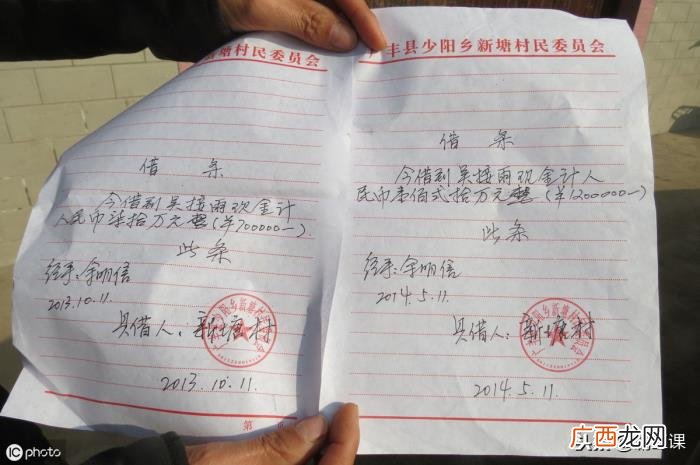 塘村民委员会
借条
今借到吴接雨现金计
人民币柒拾万元整(￥700000—).
此条
经手:余明信
2013.10.11.
具借人:新塘村
2013.10.11.
第
丰县少阳乡新塘村民委员会
借条
今借到吴接雨现金计人
民币壹佰贰拾万元整(￥1200000—)
此条
经手:余明信
2014.5.11.
具借人:新塘村
2014.5.11.
iC photo
头条
课
广西龙网